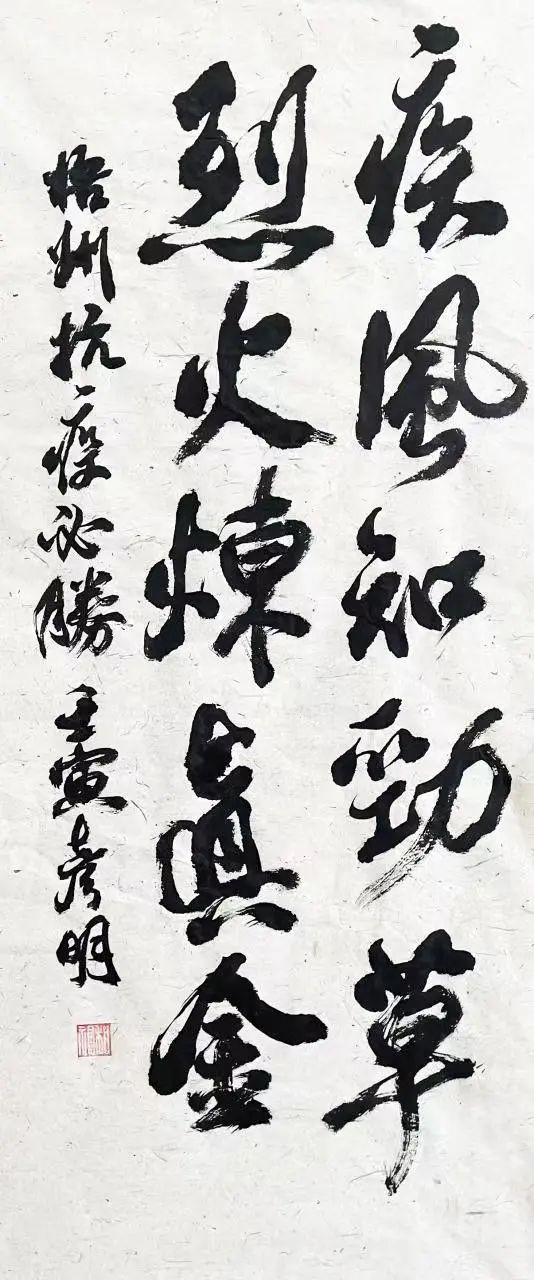 疾風知勁草
烈火煉真金
梧州抗疫必勝 壬寅彦明